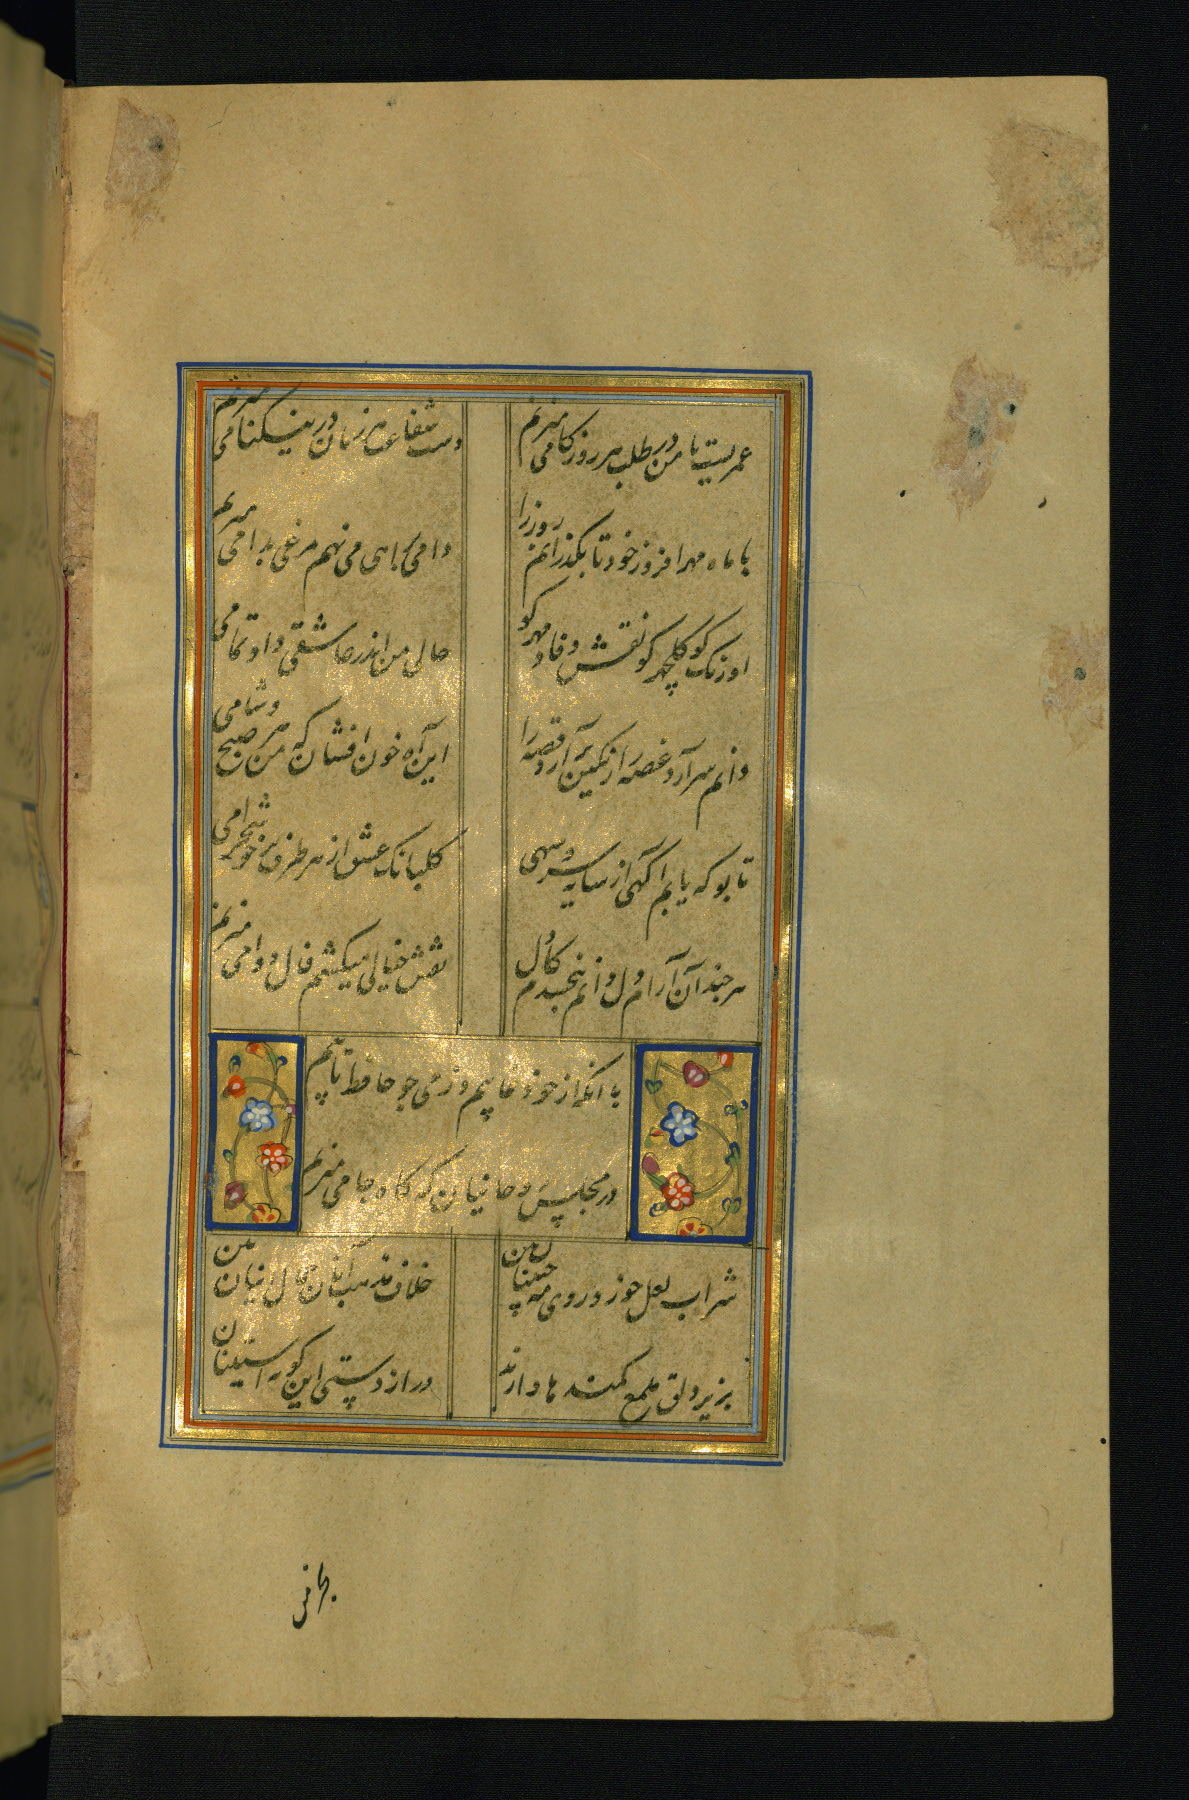 عمریست تا من در طلب هر روز کامی میزنم
دست شفاعت هر زمان در نیکنامی میزنم
با ماه مهر افروز خود تا بگذرانم روز را
دامی براهی می نهم مرغی بدامی میزنم
اورنک کو کلچهر کو نقش وفا و مهر کو
حال من اندر عاشقی داو تمامی
دانم سر آرد غصه را رنکین برآرد قصه را
این آه خون افشان که من هر صبح وشامی
تا بو که یابم آکهی از سایه سرو سهی
کلبانک عشق از هر طرف بر خوشخرامی
هر چند آن آرام دل دانم نبخشد کام دل
نقش خیالی میکشم فال دوامی میزنم
با آنکه از خود غایبم وز می چو حافظ تایبم
در مجلس روحانیان که کاه جامی میزنم
شراب لعل خور و روی مه جبینان بین
خلاف مذهب آنان جمال اینان بین
بزیر دلق ملمع کمندها دارند
دراز دستی این کوته آستینان
بخرمن